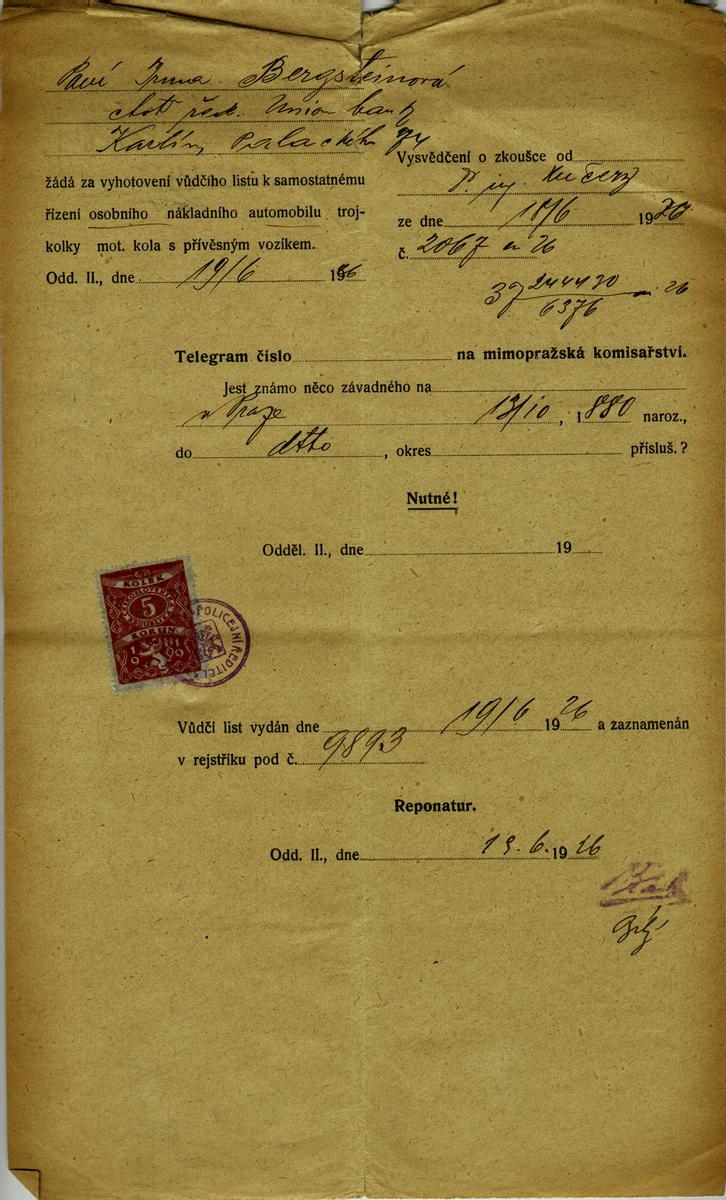 Paní Irma Bergsteinová
choť řed. Union banky
Karlín, Palackého 74
žádá za vyhotovení vůdčího listu k samostatnému
řízení osobního nákladního automobilu troj-
kolky mot. kola s přívěsným vozíkem.
Odd. II., dne 19/6 1926
Vysvědčení o zkoušce od
ing. Kučery
ze dne 18/6 1926
č. 2067 26
37 244430 26
6376
Telegram číslo na mimopražská komisařství.
Jest známo něco závadného na
v Praze 13/10, 1880 naroz.,
do dtto, okres přísluš.?
Nutné!
Odděl. II., dne 19
KOLEK
ČESKOSLOVENSKÁ
REPUBLIKA
5
KORUN
1919
POLICEJNÍ ŘEDITEL
Vůdčí list vydán dne 19/6 1926 a zaznamenán
v rejstříku pod č. 9893
Reponatur.
Odd. II., dne 19.6. 1926